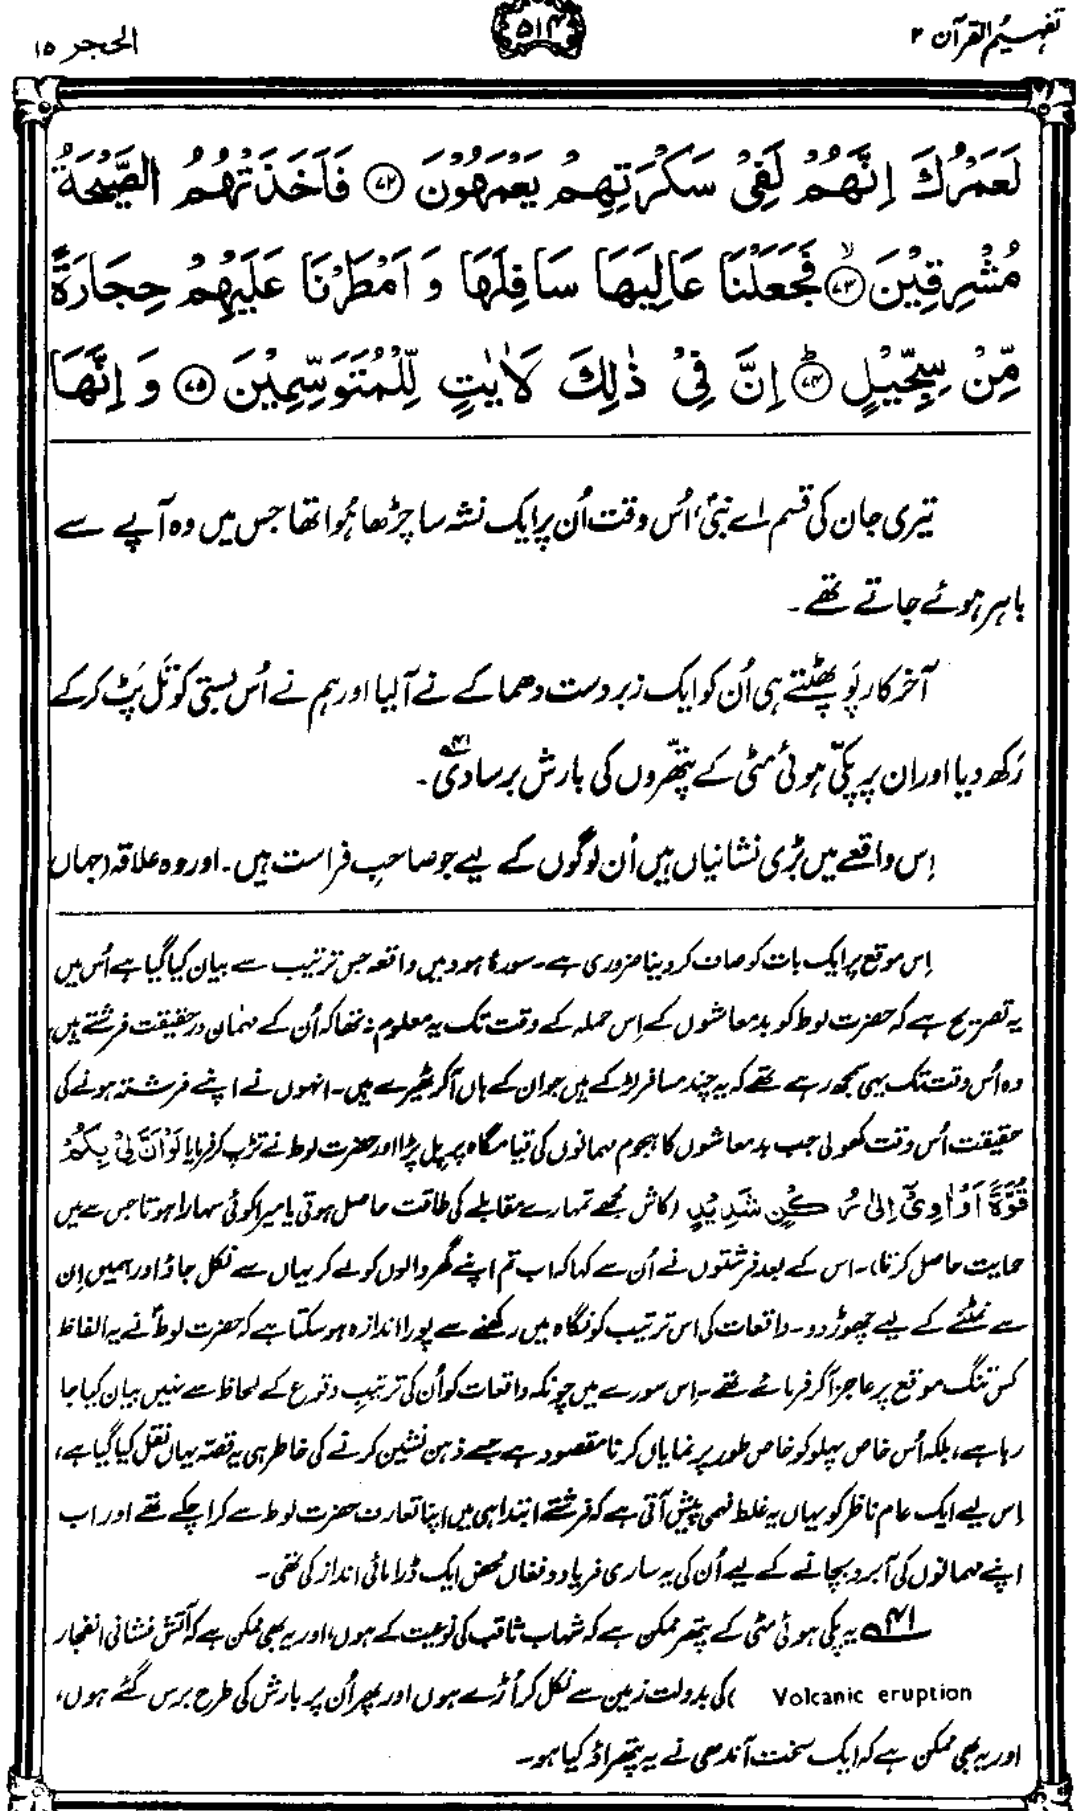 تفہیم القرآن ۲
۵۱۴
الحجر ۱۵
لَعَمْرُكَ اِنَّهُمْ لَفِیْ سَكْرَتِهِمْ یَعْمَهُوْنَ ﴿۷۲﴾ فَاَخَذَتْهُمُ الصَّیْحَةُ
مُشْرِقِیْنَ ﴿۷۳﴾ۙ فَجَعَلْنَا عَالِیَهَا سَافِلَهَا وَ اَمْطَرْنَا عَلَیْهِمْ حِجَارَةً
مِّنْ سِجِّیْلٍ ﴿۷۴﴾ؕ اِنَّ فِیْ ذٰلِكَ لَاٰیٰتٍ لِّلْمُتَوَسِّمِیْنَ ﴿۷۵﴾ وَ اِنَّهَا
تیری جان کی قسم اے نبیؐ، اُس وقت اُن پر ایک نشہ سا چڑھا ہُوا تھا جس میں وہ آپے سے
باہر ہوئے جاتے تھے۔
آخر کار پَو پھٹتے ہی اُن کو ایک زبردست دھماکے نے آلیا اور ہم نے اُس بستی کو تَل پَٹ کر کے
رَکھ دیا اور ان پر پکّی ہوئی مٹی کے پتھّروں کی بارش برسا دی۴۱۔
اِس واقعے میں بڑی نشانیاں ہیں اُن لوگوں کے لیے جو صاحبِ فراست ہیں۔ اور وہ علاقہ (جہاں
اِس موقع پر ایک بات کو صاف کر دینا ضروری ہے۔ سورۂ ہود میں واقعہ جس ترتیب سے بیان کیا گیا ہے اُس میں
یہ تصریح ہے کہ حضرت لوط کو بدمعاشوں کے اِس حملہ کے وقت تک یہ معلوم نہ تھا کہ اُن کے مہمان درحقیقت فرشتے ہیں
وہ اُس وقت تک یہی سمجھ رہے تھے کہ یہ چند مسافر لڑکے ہیں جو ان کے ہاں آکر ٹھیرے ہیں۔ انہوں نے اپنے فرشتہ ہونے کی
حقیقت اُس وقت کھولی جب بدمعاشوں کا ہجوم مہمانوں کی قیامگاہ پر پل پڑا اور حضرت لوط نے تڑپ کر فرمایا لَوْ اَنَّ لِیْ بِكُمْ
قُوَّةً اَوْ اٰوِیْٓ اِلٰی رُكْنٍ شَدِیْدٍ (کاش مجھے تمہارے مقابلے کی طاقت حاصل ہوتی یا میرا کوئی سہارا ہوتا جس سے میں
حمایت حاصل کرتا)۔ اس کے بعد فرشتوں نے اُن سے کہا کہ اب تم اپنے گھر والوں کو لے کر یہاں سے نکل جاؤ اور ہمیں اِن
سے نمٹنے کے لیے چھوڑ دو۔ واقعات کی اس ترتیب کو نگاہ میں رکھنے سے پورا اندازہ ہوسکتا ہے کہ حضرت لوطؑ نے یہ الفاظ
کس تنگ موقع پر عاجز آکر فرمائے تھے۔ اِس سورے میں چونکہ واقعات کو اُن کی ترتیبِ وقوع کے لحاظ سے نہیں بیان کیا جا
رہا ہے، بلکہ اُس خاص پہلو کو خاص طور پر نمایاں کرنا مقصود ہے جسے ذہن نشین کرنے کی خاطر ہی یہ قصّہ یہاں نقل کیا گیا ہے،
اِس لیے ایک عام ناظر کو یہاں یہ غلط فہمی پیش آتی ہے کہ فرشتے ابتدا ہی میں اپنا تعارف حضرت لوط سے کرا چکے تھے اور اب
اپنے مہمانوں کی آبرو بچانے کے لیے اُن کی یہ ساری فریاد و فغاں محض ایک ڈرامائی انداز کی تھی۔
۴۱ یہ پکی ہوئی مٹی کے پتھر ممکن ہے کہ شہابِ ثاقب کی نوعیت کے ہوں، اور یہ بھی ممکن ہے کہ آتش فشانی انفجار
Volcanic eruption ) کی بدولت زمین سے نکل کر اُڑے ہوں اور پھر اُن پر بارش کی طرح برس گئے ہوں،
اور یہ بھی ممکن ہے کہ ایک سخت آندھی نے یہ پتھراؤ کیا ہو۔